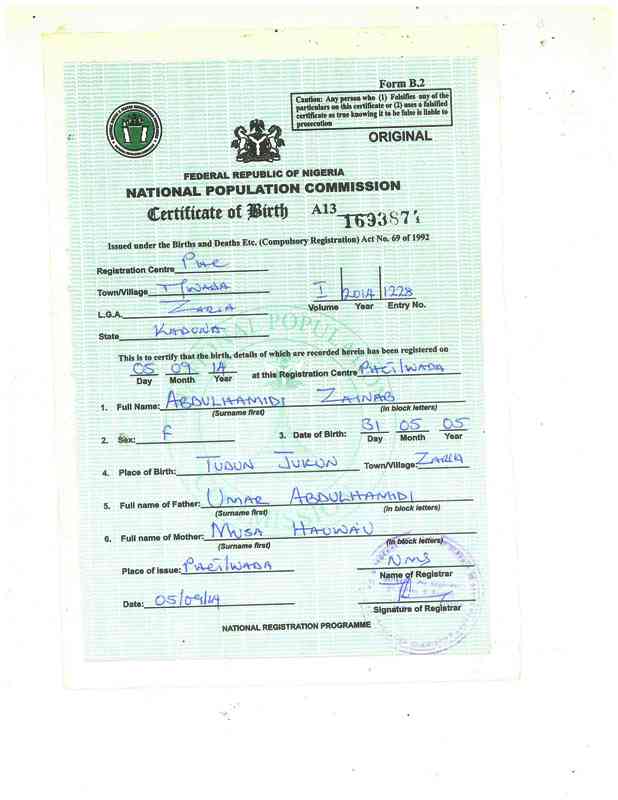 Form B.2
Caution: Any person who (1) Falsifies any of the
particulars on this certificate or (2) uses a falsified
certificate as true knowing it to be false is liable to
prosecution
ORIGINAL
FEDERAL REPUBLIC OF NIGERIA
NATIONAL POPULATION COMMISSION
Certificate of Birth A13 1693871
Issued under the Births and Deaths Etc. (Compulsory Registration) Act No. 69 of 1992
Registration Centre PHC
Town/Village T/WADA
L.G.A. ZARIA
State KADUNA
I 2014 1228
Volume Year Entry No.
This is to certify that the birth, details of which are recorded herein has been registered on
05 09 14 at this Registration Centre PHC T/WADA
Day Month Year
1. Full Name: ABDULHAMIDI ZAINAB
(Surname first) (in block letters)
2. Sex: F 3. Date of Birth: 31 05 05
Day Month Year
4. Place of Birth: TUDUN JUKUN Town/Village: ZARIA
5. Full name of Father: UMAR ABDULHAMIDI
(Surname first) (in block letters)
6. Full name of Mother: MUSA HAUWAU
(Surname first) (in block letters)
Place of issue: PHC T/WADA NMS
Name of Registrar
Date: 05/09/14
Signature of Registrar
NATIONAL REGISTRATION PROGRAMME